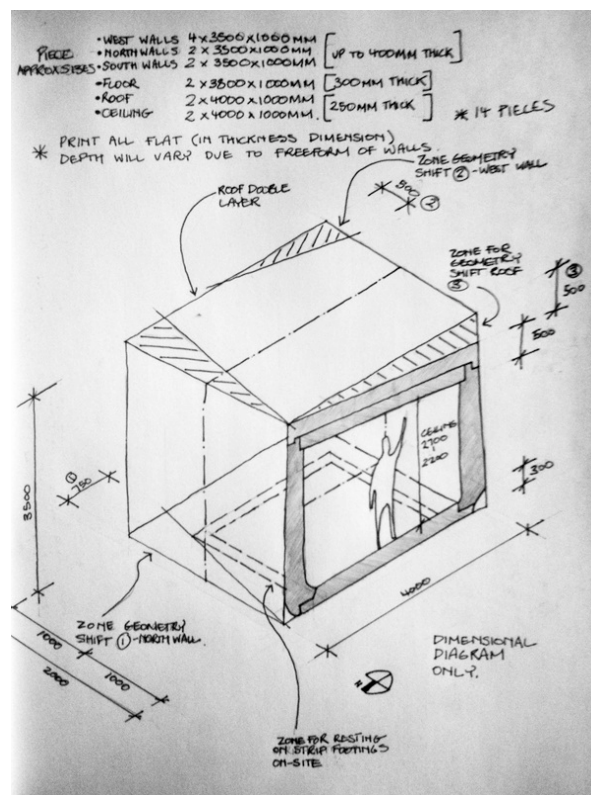 PIECE
APPROX SIZES
• WEST WALLS 4 x 3500 x 1000MM
• NORTH WALLS 2 x 3500 x 1000MM
• SOUTH WALLS 2 x 3500 x 1000MM
[UP TO 400MM THICK]
• FLOOR 2 x 3800 x 1000MM [300MM THICK]
• ROOF 2 x 4000 x 1000MM
• CEILING 2 x 4000 x 1000MM.
[250MM THICK]
* 14 PIECES
* PRINT ALL FLAT (IN THICKNESS DIMENSION)
DEPTH WILL VARY DUE TO FREEFORM OF WALLS.
ZONE GEOMETRY
SHIFT ② - WEST WALL
ROOF DOUBLE
LAYER
500
②
ZONE FOR
GEOMETRY
SHIFT ROOF
③
③
500
500
CEILING
2700
2200
300
①
750
3500
4000
ZONE GEOMETRY
SHIFT ① - NORTH WALL.
1000
1000
2000
DIMENSIONAL
DIAGRAM
ONLY.
N
ZONE FOR RESTING
ON STRIP FOOTINGS
ON-SITE